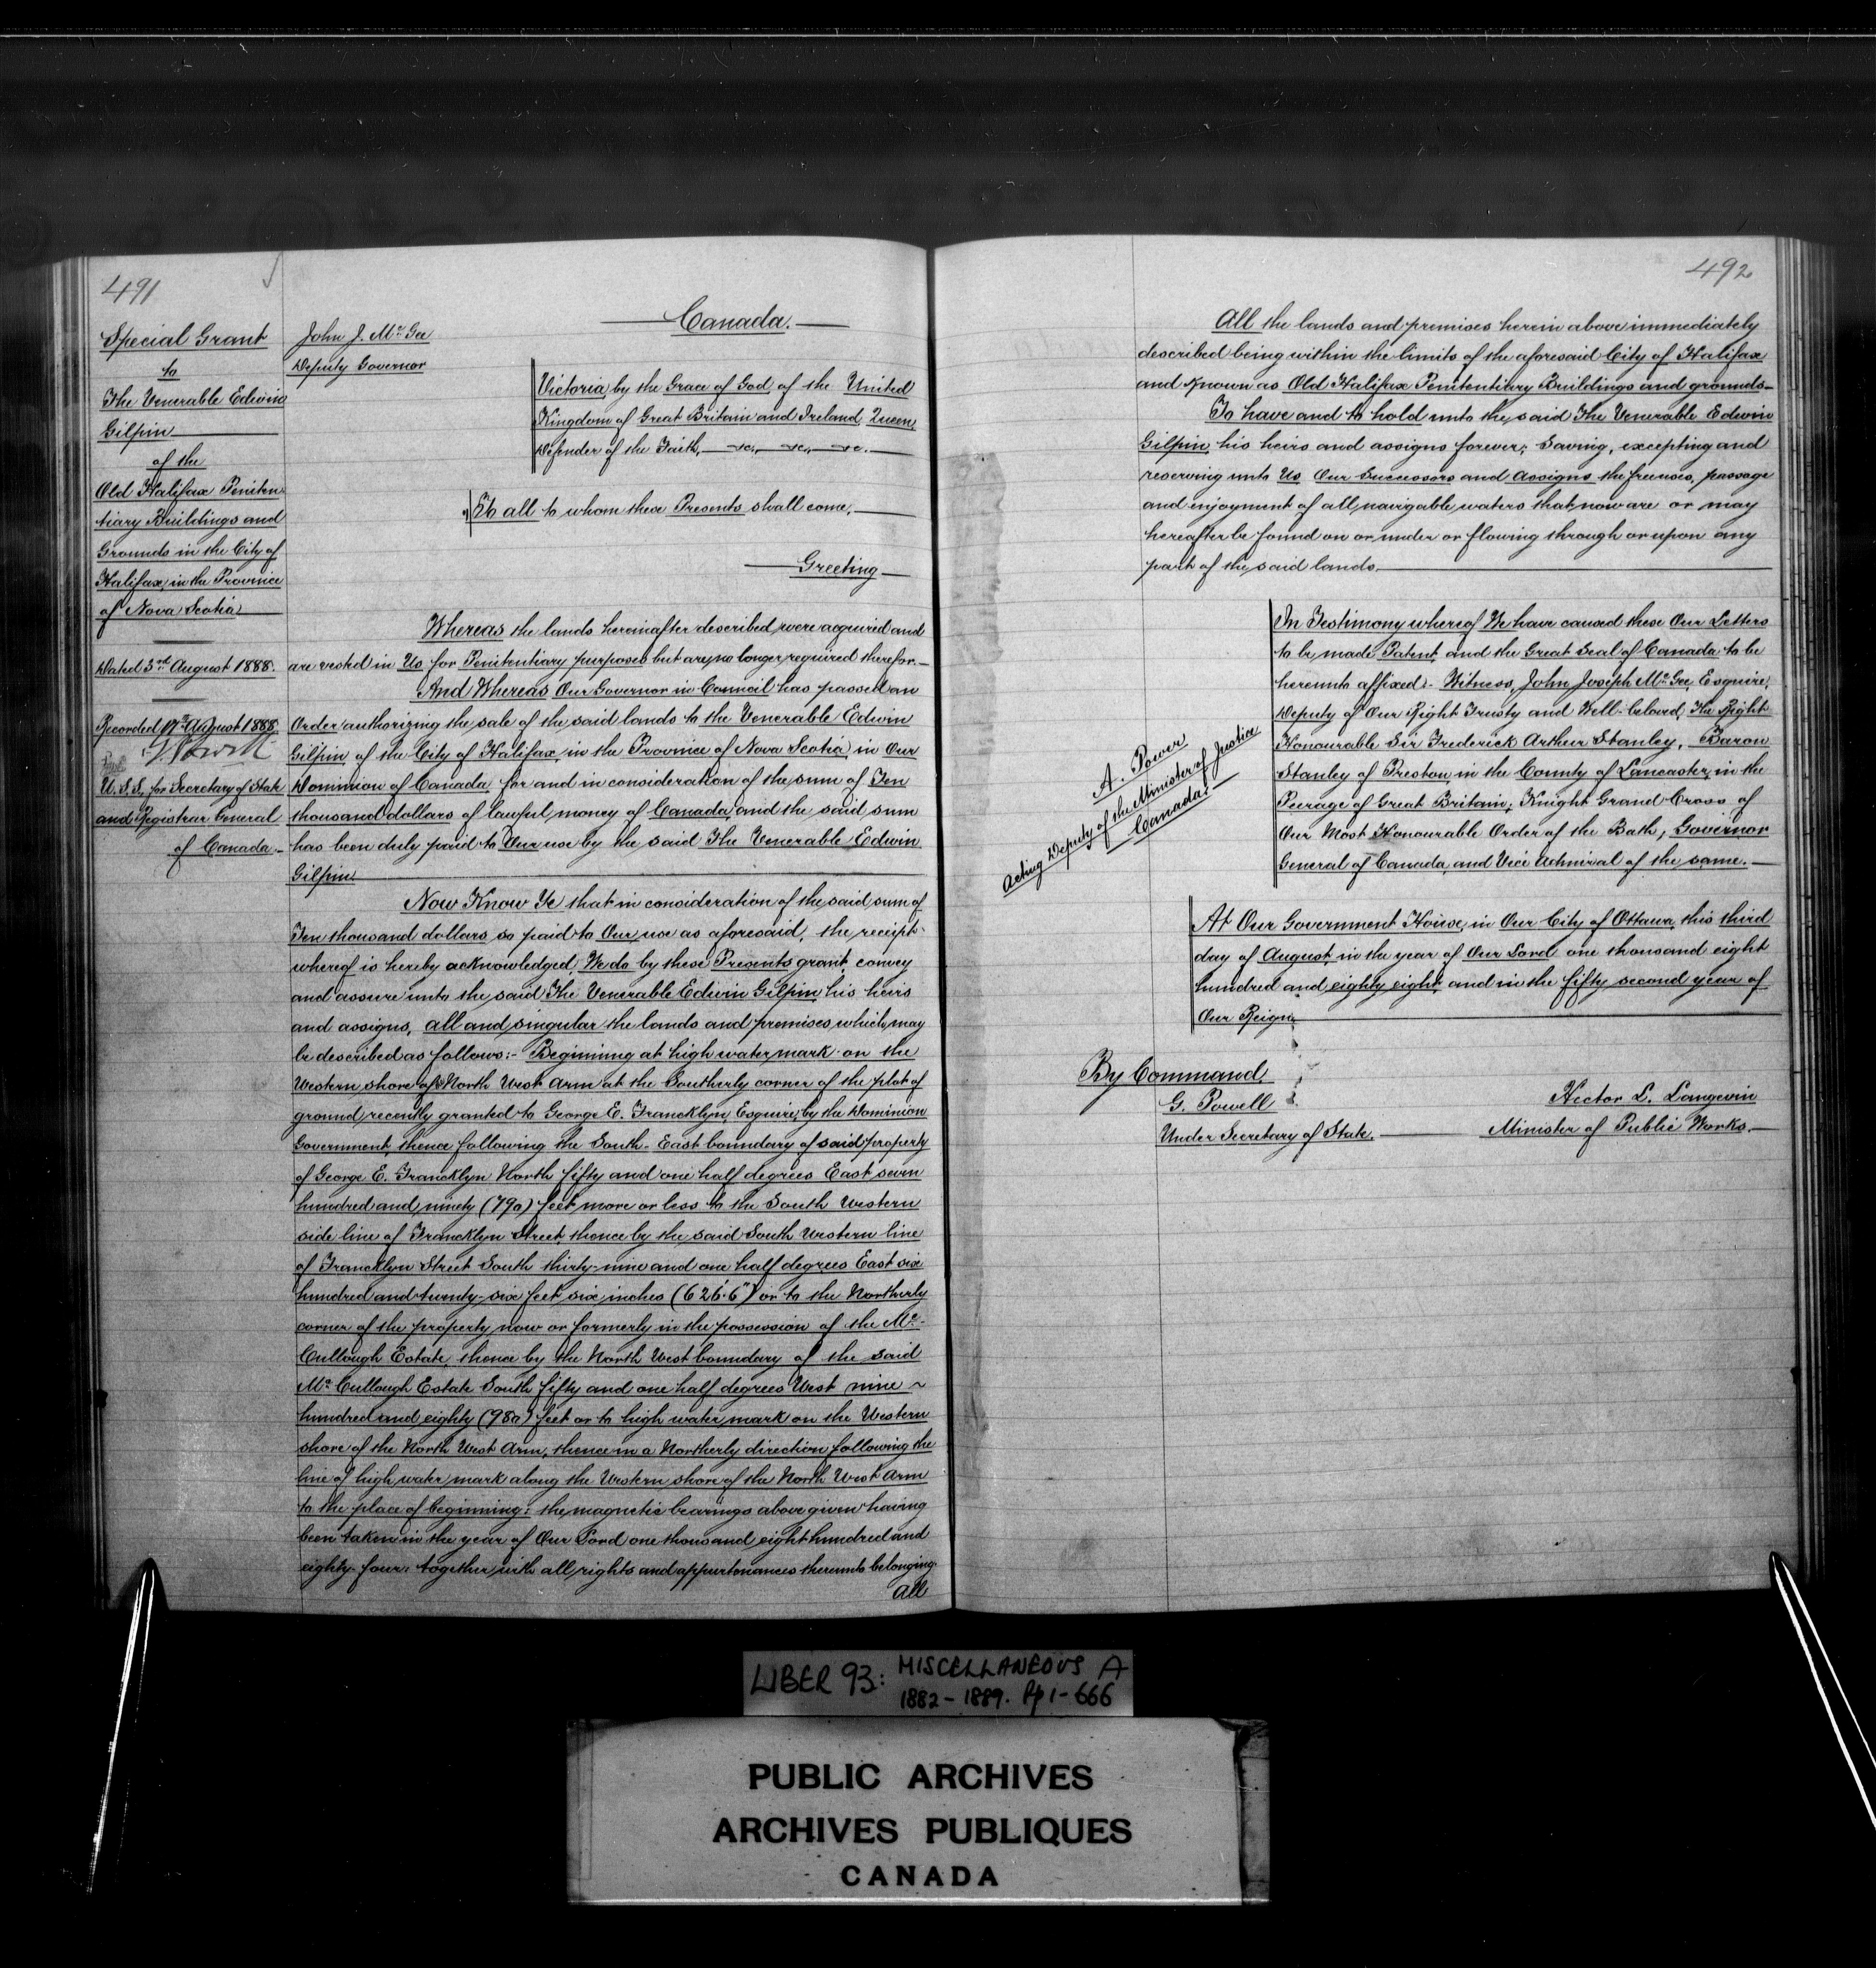 491
Special Grant
to
The Venerable Edwin
Gilpin
of the
Old Halifax Peniten
tiary Buildings and
Grounds in the City of
Halifax, in the Province
of Nova Scotia
Dated 3rd August 1888.
Recorded 17th August 1888.
G Powell
U.S.S., for Secretary of State
and Registrar General
of Canada
John J. McGee
Deputy Governor
Canada.
Victoria, by the Grace of God, of the United
Kingdom of Great Britain and Ireland, Queen,
Defender of the Faith, &c., &c., &c.
To all to whom these Presents shall come,
Greeting
Whereas the lands hereinafter described, were acquired and
are vested in Us for Penitentiary purposes but are no longer required therefor.
And Whereas Our Governor in Council has passed an
Order authorizing the sale of the said lands to the Venerable Edwin
Gilpin, of the City of Halifax, in the Province of Nova Scotia, in Our
Dominion of Canada for and in consideration of the sum of Ten
thousand dollars of lawful money of Canada, and the said sum
has been duly paid to Our use by the said The Venerable Edwin
Gilpin.
Now Know Ye that in consideration of the said sum of
Ten thousand dollars so paid to Our use as aforesaid, the receipt
whereof is hereby acknowledged, We do by these Presents grant, convey
and assure unto the said The Venerable Edwin Gilpin, his heirs
and assigns, all and singular the lands and premises which may
be described as follows:- Beginning at high water mark on the
Western shore of North West Arm at the Southerly corner of the plot of
ground recently granted to George E. Francklyn, Esquire, by the Dominion
Government, thence following the South-East boundary of said property
of George E. Francklyn North fifty and one half degrees East seven
hundred and ninety (790) feet more or less to the South Western
side line of Francklyn Street, thence by the said South Western line
of Francklyn Street South thirty-nine and one half degrees East six
hundred and twenty-six feet six inches (626'.6") or to the Northerly
corner of the property now or formerly in the possession of the Mc-
Cullough Estate, thence by the North West boundary of the said
McCullough Estate South fifty and one half degrees West nine ~
hundred and eighty (980) feet or to high water mark on the Western
shore of the North West Arm, thence in a Northerly direction following the
line of high water mark along the Western shore of the North West Arm
to the place of beginning: the magnetic bearings above given having
been taken in the year of Our Lord one thousand eight hundred and
eighty-four, together with all rights and appurtenances thereunto belonging.
All
492
All the lands and premises herein above immediately
described being within the limits of the aforesaid City of Halifax
and known as Old Halifax Penitentiary Buildings and grounds.
To have and to hold unto the said The Venerable Edwin
Gilpin, his heirs and assigns forever; Saving, excepting and
reserving unto Us, Our Successors and Assigns the free uses, passage
and enjoyment of all navigable waters that now are or may
hereafter be found on or under or flowing through or upon any
part of the said lands.
A. Power
Acting Deputy of the Minister of Justice
Canada.
In Testimony whereof We have caused these Our Letters
to be made Patent, and the Great Seal of Canada to be
hereunto affixed:- Witness, John Joseph McGee, Esquire,
Deputy of Our Right Trusty and Well-beloved, The Right
Honourable Sir Frederick Arthur Stanley, Baron
Stanley of Preston in the County of Lancaster, in the
Peerage of Great Britain; Knight Grand Cross of
Our Most Honourable Order of the Bath, Governor
General of Canada, and Vice Admiral of the same.
At Our Government House, in Our City of Ottawa, this third
day of August, in the year of Our Lord one thousand eight
hundred and eighty eight, and in the fifty second year of
Our Reign.
By Command,
G. Powell
Under Secretary of State.
Hector L. Langevin
Minister of Public Works.
LIBER 93: MISCELLANEOUS A
1882-1889. Pp 1-666
PUBLIC ARCHIVES
ARCHIVES PUBLIQUES
CANADA